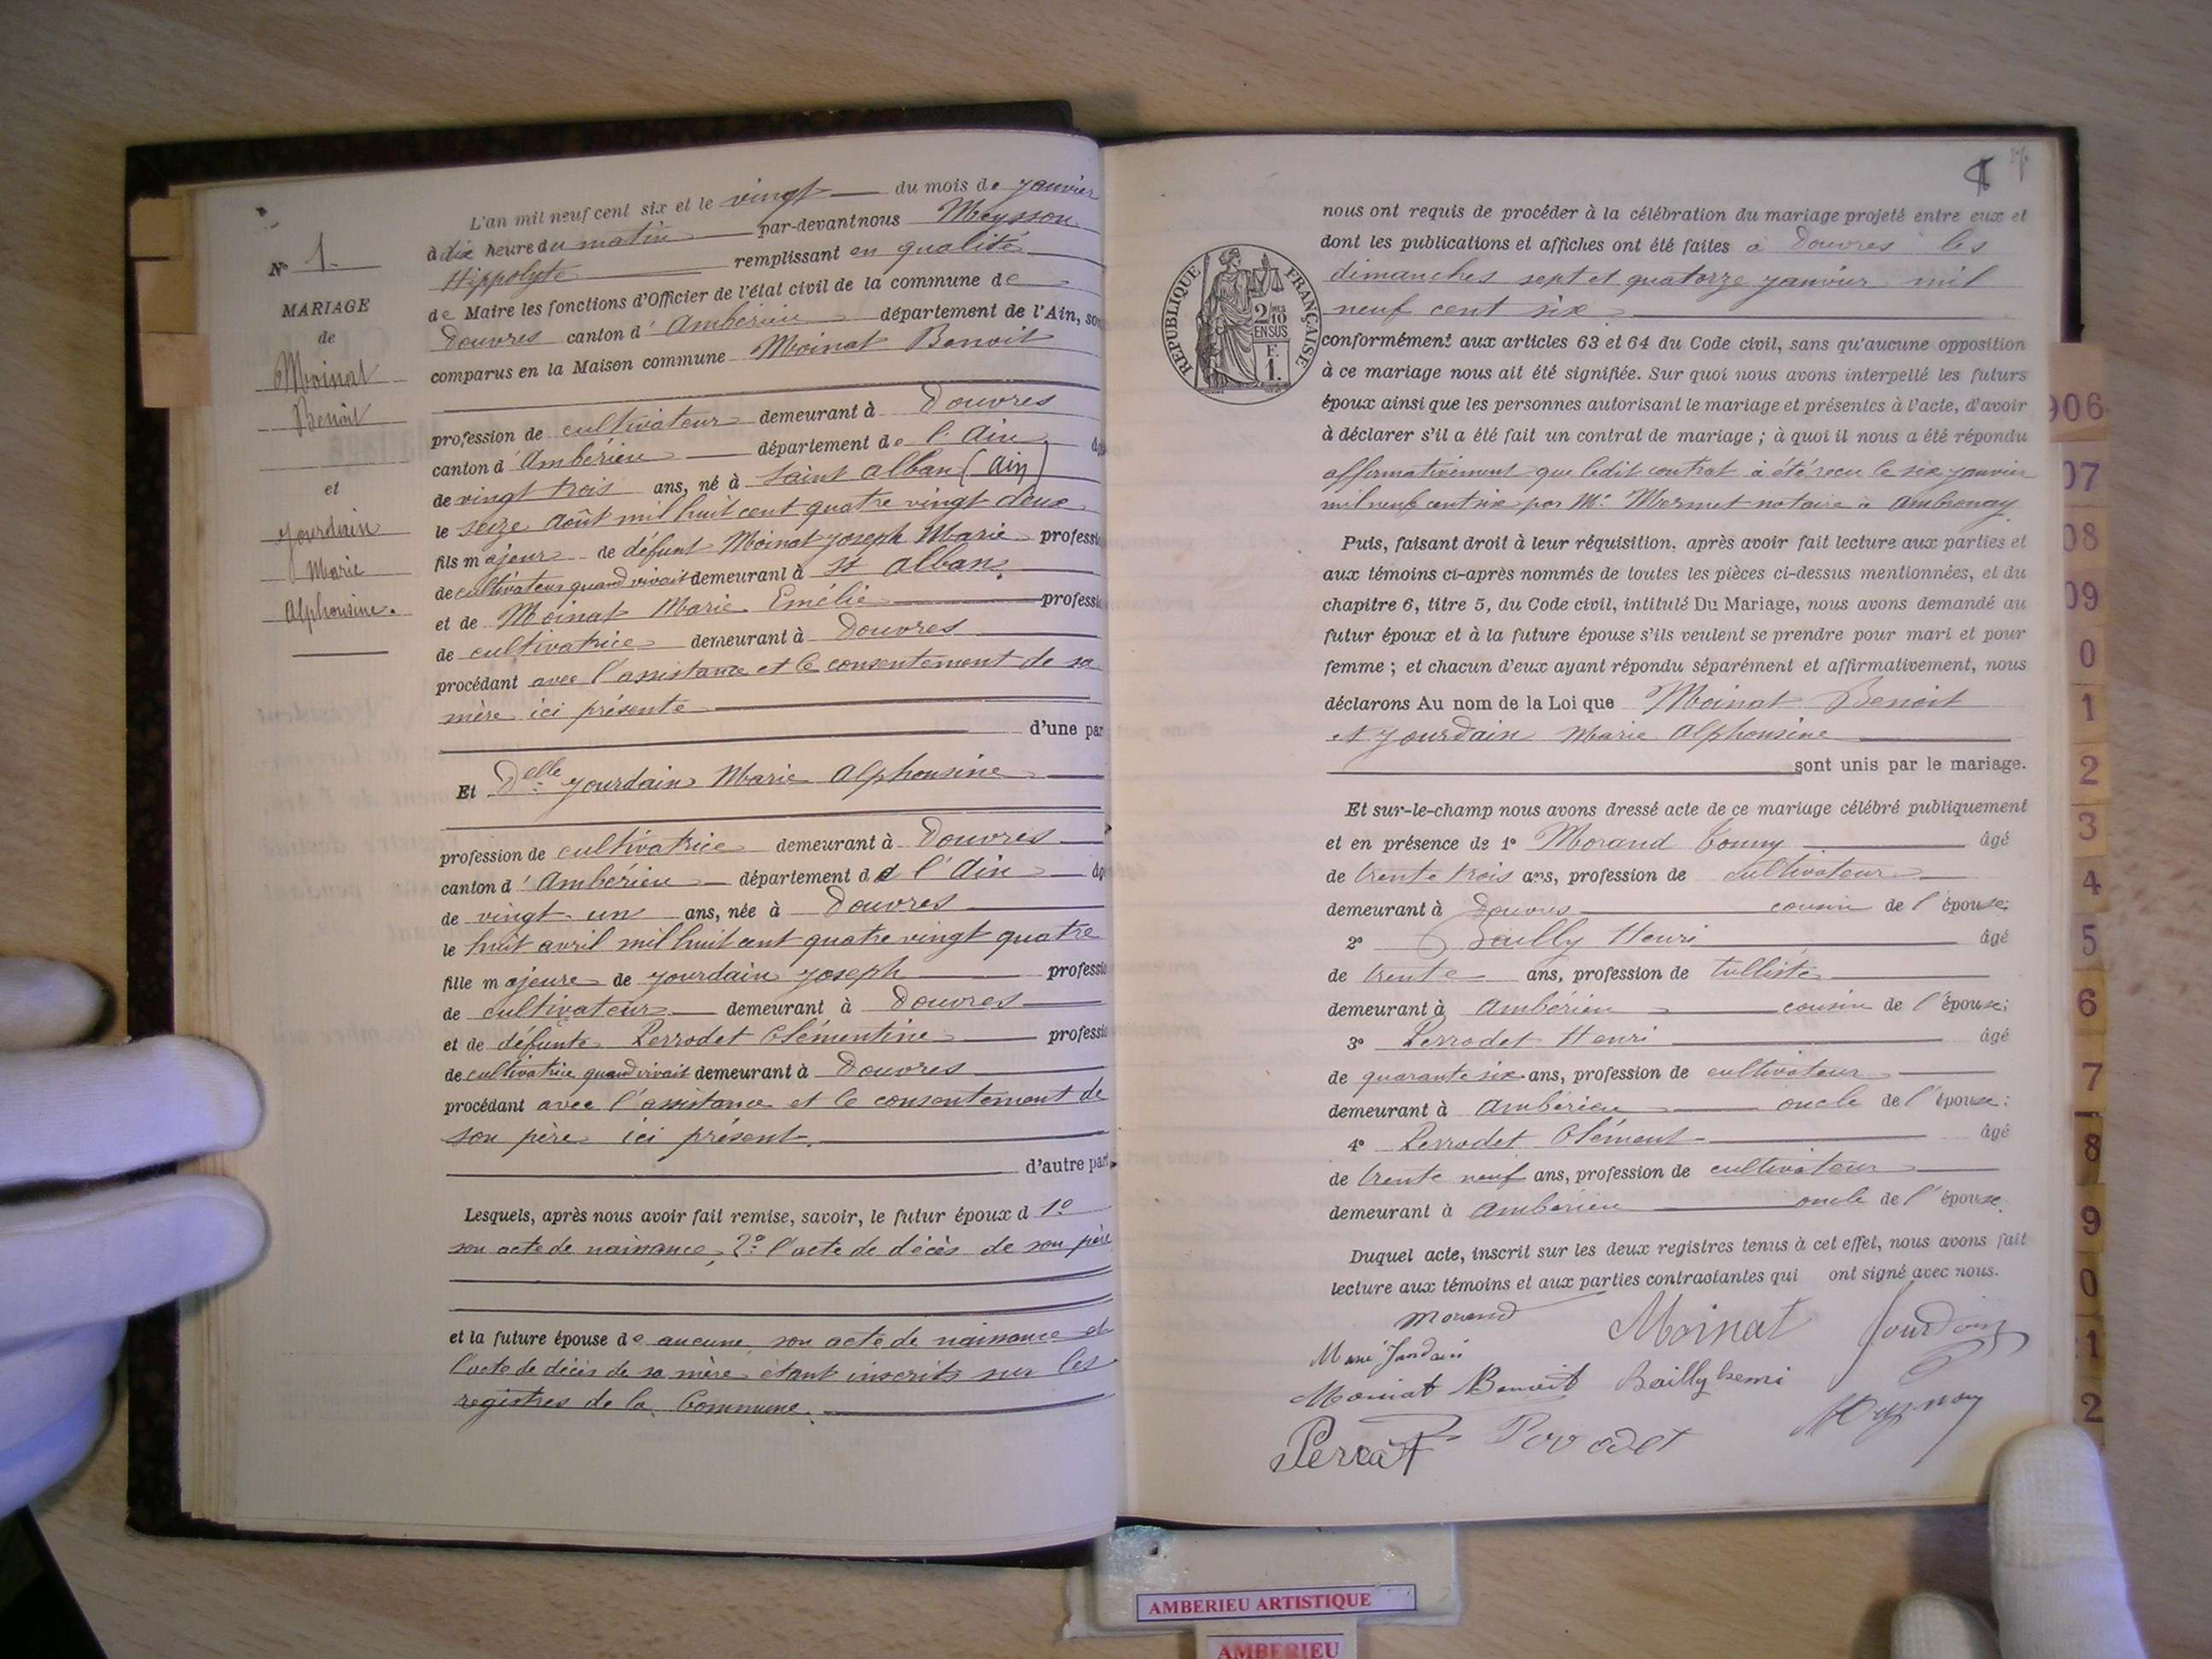 N° 1.
MARIAGE
de
Moinat
Benoît
et
Jourdain
Marie
Alphonsine.
L'an mil neuf cent six et le vingt du mois de Janvier
à dix heure du matin par-devant nous Meysson
Hippolyte remplissant en qualité
de Maire les fonctions d'Officier de l'état civil de la commune de
Douvres canton d'Ambérieu département de l'Ain, so
comparus en la Maison commune Moinat Benoit
profession de cultivateur demeurant à Douvres
canton d'Ambérieu département de l'Ain
de vingt trois ans, né à Saint Alban (Ain)
le seize Août mil huit cent quatre vingt deux
fils majeur de défunt Moinat Joseph Marie professi
de cultivateur quand vivait demeurant à St Alban
et de Moinat Marie Emélie professi
de cultivatrice demeurant à Douvres
procédant avec l'assistance et le consentement de sa
mère ici présente
d'une par
Et Delle Jourdain Marie Alphonsine
profession de cultivatrice demeurant à Douvres
canton d'Ambérieu département de l'Ain
de vingt-un ans, née à Douvres
le huit avril mil huit cent quatre vingt quatre
fille majeure de Jourdain Joseph professi
de cultivateur demeurant à Douvres
et de défunte Perrodet Clémentine professi
de cultivatrice quand vivait demeurant à Douvres
procédant avec l'assistance et le consentement de
son père ici présent.
d'autre part
Lesquels, après nous avoir fait remise, savoir, le futur époux d 1°
son acte de naissance, 2° l'acte de décès de son père
et la future épouse de aucune, son acte de naissance et
l'acte de décès de sa mère étant inscrits sur les
registres de la Commune.
RÉPUBLIQUE FRANÇAISE
2/10
EN SUS
F.
1.
nous ont requis de procéder à la célébration du mariage projeté entre eux et
dont les publications et affiches ont été faites à Douvres les
dimanches sept et quatorze janvier mil
neuf cent six
conformément aux articles 63 et 64 du Code civil, sans qu'aucune opposition
à ce mariage nous ait été signifiée. Sur quoi nous avons interpellé les futurs
époux ainsi que les personnes autorisant le mariage et présentes à l'acte, d'avoir
à déclarer s'il a été fait un contrat de mariage ; à quoi il nous a été répondu
affirmativement que ledit contrat a été reçu le six janvier
mil neuf cent six par Me Mermet notaire à Ambronay
Puis, faisant droit à leur réquisition, après avoir fait lecture aux parties et
aux témoins ci-après nommés de toutes les pièces ci-dessus mentionnées, et du
chapitre 6, titre 5, du Code civil, intitulé Du Mariage, nous avons demandé au
futur époux et à la future épouse s'ils veulent se prendre pour mari et pour
femme ; et chacun d'eux ayant répondu séparément et affirmativement, nous
déclarons Au nom de la Loi que Moinat Benoit
et Jourdain Marie Alphonsine
sont unis par le mariage.
Et sur-le-champ nous avons dressé acte de ce mariage célébré publiquement
et en présence de 1° Morand Tonny âgé
de trente trois ans, profession de cultivateur
demeurant à Douvres cousin de l'épouse;
2° Bailly Henri âgé
de trente ans, profession de tulliste
demeurant à Ambérieu cousin de l'épouse;
3° Perrodet Henri âgé
de quarante six ans, profession de cultivateur
demeurant à Ambérieu oncle de l'épouse:
4° Perrodet Clément âgé
de trente neuf ans, profession de cultivateur
demeurant à Ambérieu oncle de l'épouse.
Duquel acte, inscrit sur les deux registres tenus à cet effet, nous avons fait
lecture aux témoins et aux parties contractantes qui ont signé avec nous.
Morand Moinat Jourdain
Marie Jourdain
Moinat Benoit Bailly henri
906
07
08
09
0
1
2
3
4
5
6
7
8
9
0
1
2
AMBERIEU ARTISTIQUE
AMBERIEU